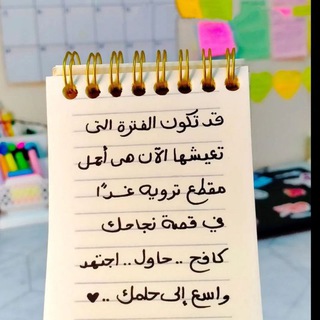 قد تكون الفترة التى
تعيشها الآن هى أجمل
مقطع ترويه غدًا
في قصة نجاحك
كافح .. حاول .. اجتهد
واسع إلى حلمك .. ♥